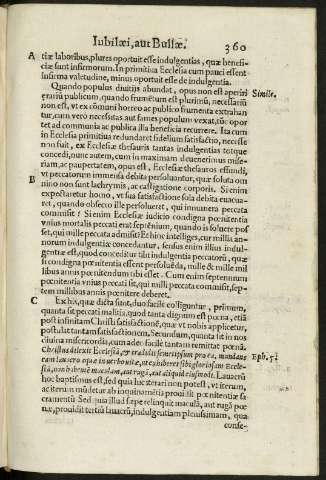 Iubilæi, aut Bullæ. 360
A tiæ laboribus, plures oportuit esse indulgentias, quæ benefi-
ciæ sunt infirmorum. In primitiua Ecclesia cum pauci essent
infirma valetudine, minus oportuit esse de indulgentia.
Quando populus diuitijs abundat, opus non est aperiri Simile.
ęrariũ publicum, quando frumẽtum est plurimũ, necessariũ
non est, vt ex cõmuni horreo ac publico frumenta extrahan
tur, cum verò necessitas aut fames populum vexat, tũc opor
tet ad communia ac publica illa beneficia recurrere. Ita cum
in Ecclesia primitiua redundaret fidelium satisfactio, necesse
non fuit, ex Ecclesiæ thesauris tantas indulgentias toties
concedi, nunc autem, cum in maximam deuenimus mise-
riam, ac paupertatem, opus est, Ecclesiæ thesauros effundi,
vt peccatorum immensa debita persoluantur, quæ soluta om
B nino non sunt lachrymis, ac castigatione corporis. Si enim
expectaretur homo, vt sua satisfactione sola debita euacua-
ret, quando obsecro ille persolueret, qui innumera peccata
commisit? Si enim Ecclesiæ iudicio condigna pœnitentia
vnius mortalis peccati erat septẽnium, quando is soluere pos
set, qui mille peccata admisit? Et hinc intelliges, cur millia an-
norum indulgentiæ concedantur, sensus enim illius indul-
gentiæ est, quod conceditur tibi indulgentia peccatorũ, quæ
si condigna pœnitentia essent persoluẽda, mille & mille mil
libus annis pœnitendum tibi esset. Cum enim septennium
pœnitentia vnius peccati sit, qui mille peccata commisit, sep-
tem millibus annis pœnitere deberet.
C Ex his, quæ dicta sunt, duo facile colliguntur, primum,
quanta sit peccati malitia, quod tanta dignum est pœna, etiã
post infinitam Christi satisfactionẽ, quæ vt nobis applicetur,
postulat tantam satisfactionem. Secundum, quanta sit in nos
diuina misericordia, cum adeo facile tantam remittat pœnã.
Christus dilexit Ecclesiã, & tradidit semetipsum pro ea, mundans Eph. 5.
eam lauacro aquæ in verbo vitæ, vt exhiberet sibi gloriosam Eccle-
siã, non habentẽ maculam, aut rugã, aut aliquid eiusmodi. Lauacrũ
hoc baptismus est, sed quia hic iterari non potest, vt iterum,
ac iterum mũdetur ab inquinamẽtis prouisit pœnitentiæ sa
cramentũ. Sed quia illud sæpe relinquit maculã, aut rugã pœ
næ, prouidit tertiũ lauacrũ, indulgentiam plenissimam, qua
conse-